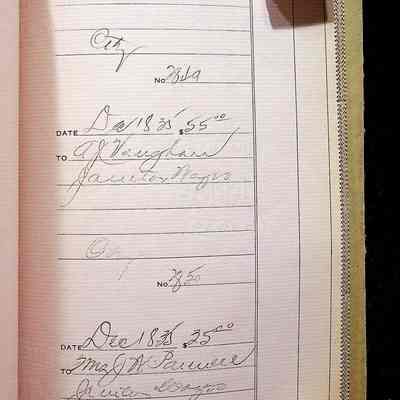 City
No 7849
DATE Dec 18 35 $55 00
TO A J Vaughan
Janitor Wages
City
No. 7850
DATE Dec 18 35 $35 00
TO Mrs J W
Janitor Wages